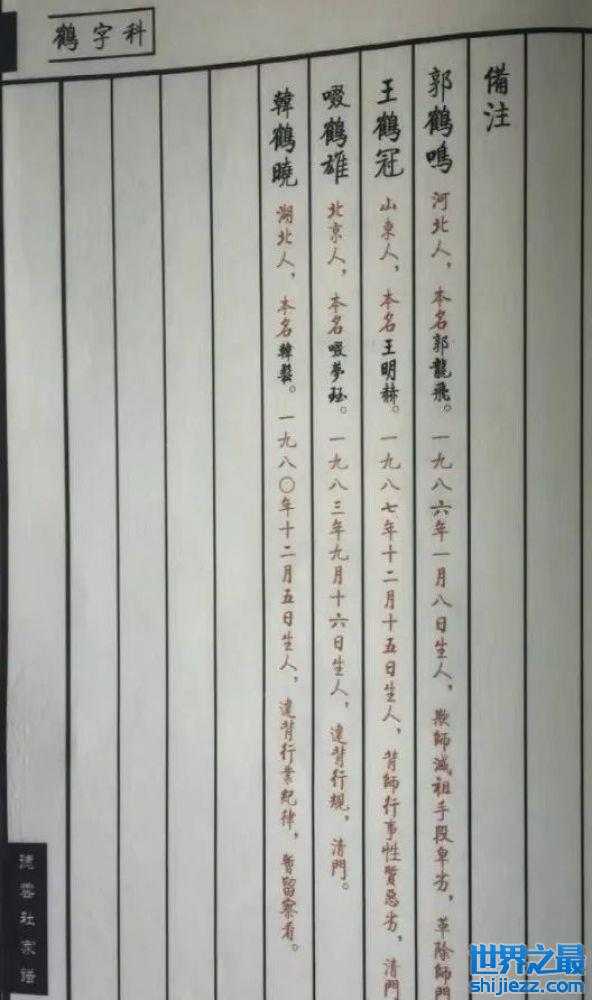 鶴字科
備注
郭鶴鳴 河北人，本名郭龍飛。一九八六年一月八日生人，欺師滅祖手段卑劣，革除師門
王鶴冠 山東人，本名王明赫。一九八七年十二月十五日生人，背師行事性質惡劣，清門
啜鶴雄 北京人，本名啜夢。一九八三年九月十六日生人，違背行規，清門。
韓鶴曉 湖北人，本名韓。一九八〇年十二月五日生人，違背行業紀律，暫留察看。
德雲社家譜
世界之最
shijiezz.com